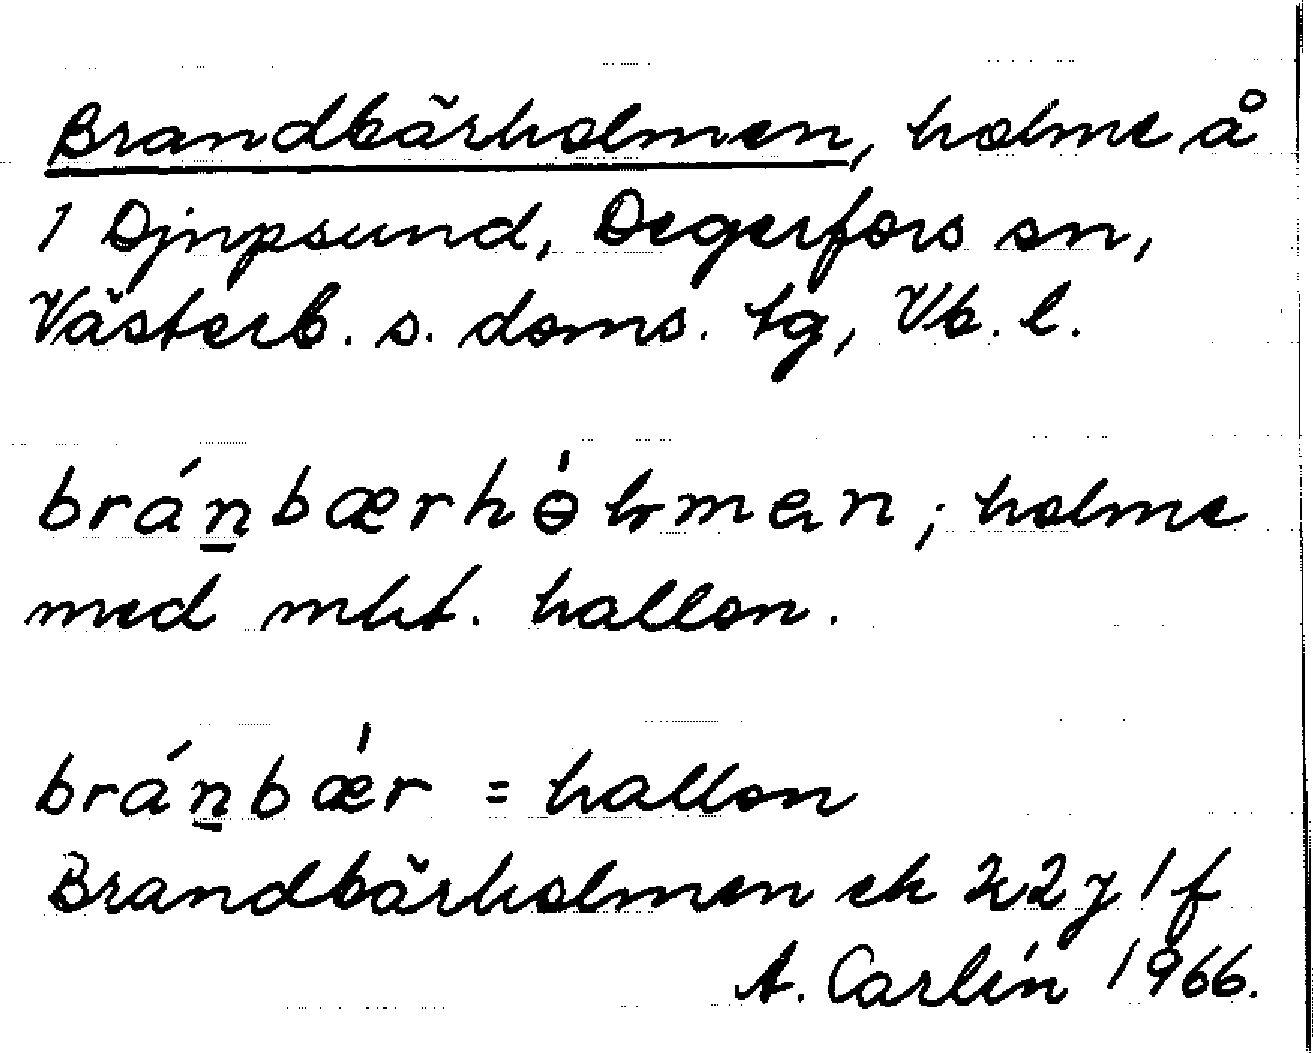 Brandbärholmen, holme å
1 Djupsund, Degerfors sn,
Västerb. s. doms. tg, Vb. l.
bránbærhɵ̍lmen; holme
med mkt. hallon.
bránbæ̍r = hallon
Brandbärholmen ek 2 1 f
A. Carlín 1966.